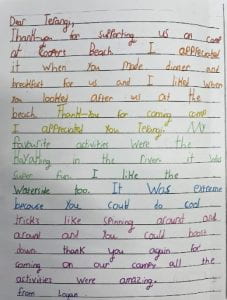 Dear Terangi,
Thank-you for supporting us on camp
at Beach. I appreciated
it when you made dinner and
breakfast for us and I liked when
you looked after us at the
beach. Thank-you for coming camp
I appreciated you Terangi. My
favourite activities were the
in the river. it was
super fun. I like the
Waterslide too. It was extreme
because you could do cool
tricks like spinning around and
around and you could boost
down. thank you again for
coming on our camp all the
activities were amazing.
from Logan